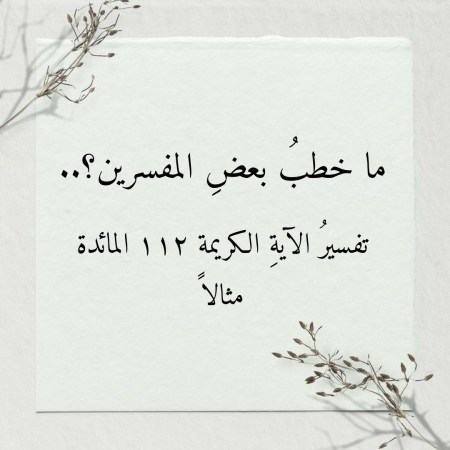 ما خطبُ بعضِ المفسرين؟..
تفسيرُ الآيةِ الكريمة ١١٢ المائدة
مثالاً